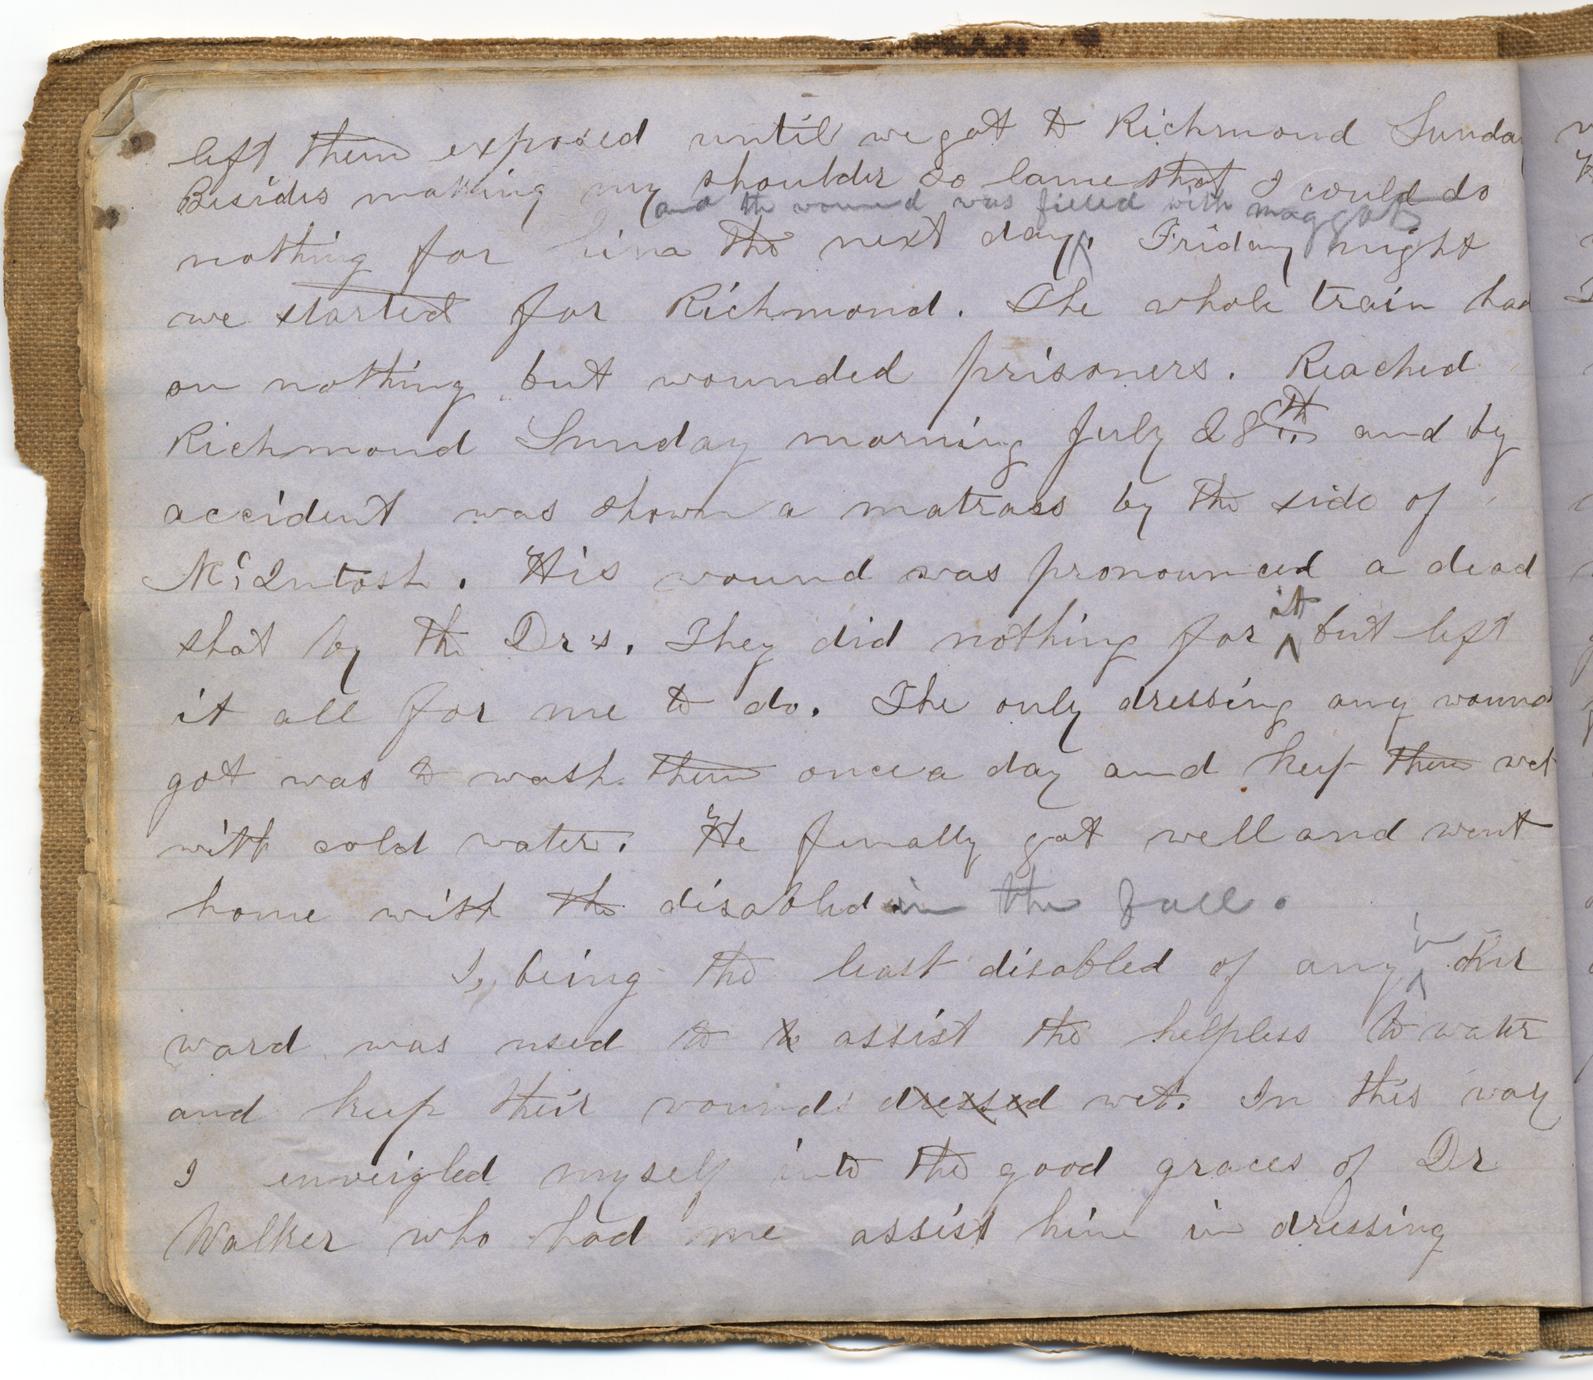 left them exposed until we got to Richmond Sunday
Besides making my shoulder so lame that I could do
and the wound was filled with maggots
nothing for him the next day. Friday night
we started for Richmond. The whole train had
on nothing but wounded prisoners. Reached
Richmond Sunday morning July 28th and by
accident was shown a matrass by the side of
McIntosh. His wound was pronounced a dead
shot by the Dr's. They did nothing for it but left
it all for me to do. The only dressing any wound
got was to wash them once a day and keep them wet
with cold water. He finally got well and went
home with the disabled in the fall.
I, being the least disabled of any in our
ward was used to to assist the helpless to water
and keep their wounds dressed wet. In this way
I enveigled myself into the good graces of Dr
Walker who had me assist him in dressing